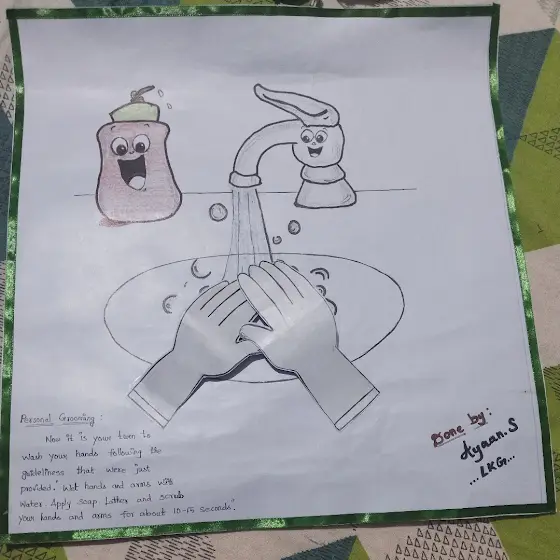 Personal Grooming :
Now it is your turn to
wash your hands following the
guideliness that were just
provided." Wet hands and arms with
water. Apply soap Lather and scrub
your hands and arms for about 10-15 seconds".
Done by:
Ayaan.S
...LKG...